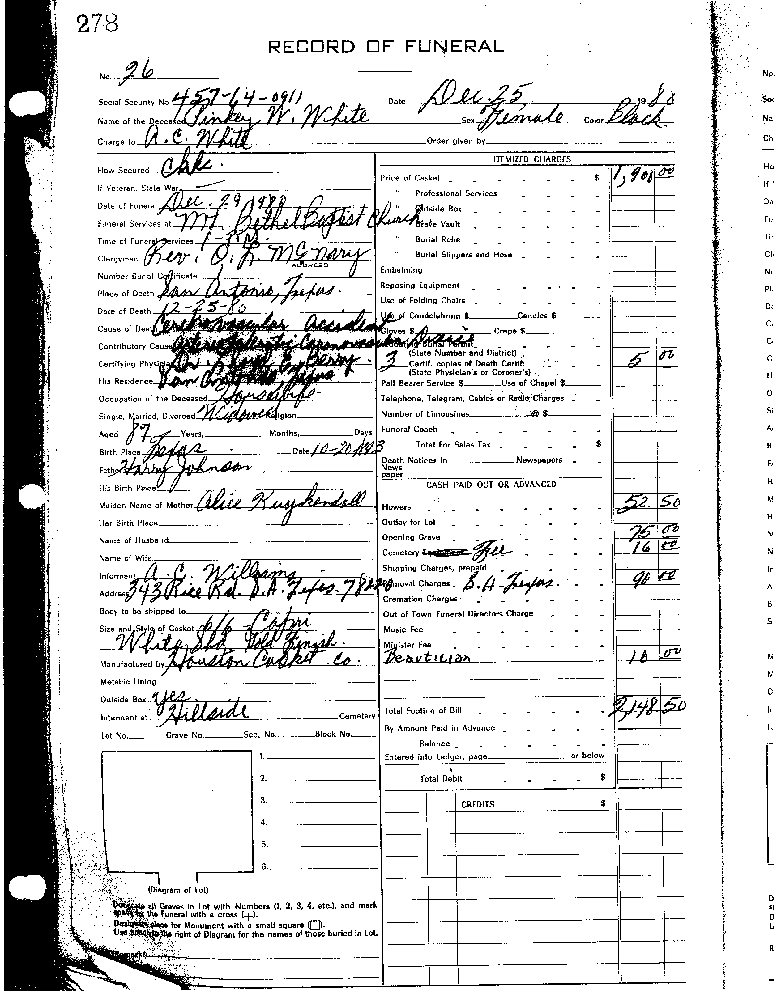 278
RECORD OF FUNERAL
No. 26
Social Security No. 457-64-0911 Date Dec. 25, 1980
Name of the Deceased Pinkey W. White Sex Female Color Black
Charge to A.C. White Order given by
How Secured Chk.
If Veteran, State War
Date of Funeral Dec. 29 1980
Funeral Services at Mt. Bethel Baptist Church
Time of Funeral Services 1-P.M.
Clergyman Rev. O. L. McGnary
ADDRESS
Number Burial Certificate
Place of Death San Antonio, Texas.
Date of Death 12-25-80
Cause of Death Cerebrovascular Accident
Contributory Cause
Certifying Physician Dr. Berry.
His Residence San Antonio Texas
Occupation of the Deceased Housewife
Single, Married, Divorced Widowed Religion
Aged 87 Years, Months, Days
Birth Place Texas Date 10-20-1893
Father Harry Johnson
His Birth Place
Maiden Name of Mother Alice Kuykendall
Her Birth Place
Name of Husband
Name of Wife
Informant A.C. Williams
Address 343 Rice Rd. S.A. Texas
Body to be shipped to
Size and Style of Casket 6/6 Capri
White Shd Gold Finish.
Manufactured by Houston Casket Co.
Metallic Lining
Outside Box yes
Interment at Hillside Cemetery
Lot No. Grave No. Sec. No. Block No.
1.
2.
3.
4.
5.
6.
(Diagram of Lot)
Designate all Graves in Lot with Numbers (1, 2, 3, 4, etc.), and mark
space for the Funeral with a cross (+).
Designate place for Monument with a small square (□).
Use space to the right of Diagram for the names of those buried in Lot.
Remarks
ITEMIZED CHARGES
Price of Casket $ 1,900 00
" Professional Services
" Outside Box
" Grave Vault
" Burial Robe
" Burial Slippers and Hose
Embalming
Reposing Equipment
Use of Folding Chairs
Use of Candelabrum $ Candles $
Gloves $ Crape $
Burial Permit
(State Number and District)
3 Certif. copies of Death Certif. 5 00
(State Physician's or Coroner's)
Pall Bearer Service $ Use of Chapel $
Telephone, Telegram, Cables or Radio Charges
Number of Limousines @ $
Funeral Coach
Total for Sales Tax $
Death Notices in Newspapers
News
paper
CASH PAID OUT OR ADVANCED
Flowers 52 50
Outlay for Lot
Opening Grave 75 00
Cemetery Fee 16 00
Shipping Charges, prepaid
Removal Charges S.A. Texas. 90 00
Cremation Charges
Out of Town Funeral Directors Charge
Music Fee
Minister Fee
Beautician 10 00
Total Footing of Bill 2,148 50
By Amount Paid in Advance
Balance
Entered into Ledger, page or below
Total Debit $
CREDITS $